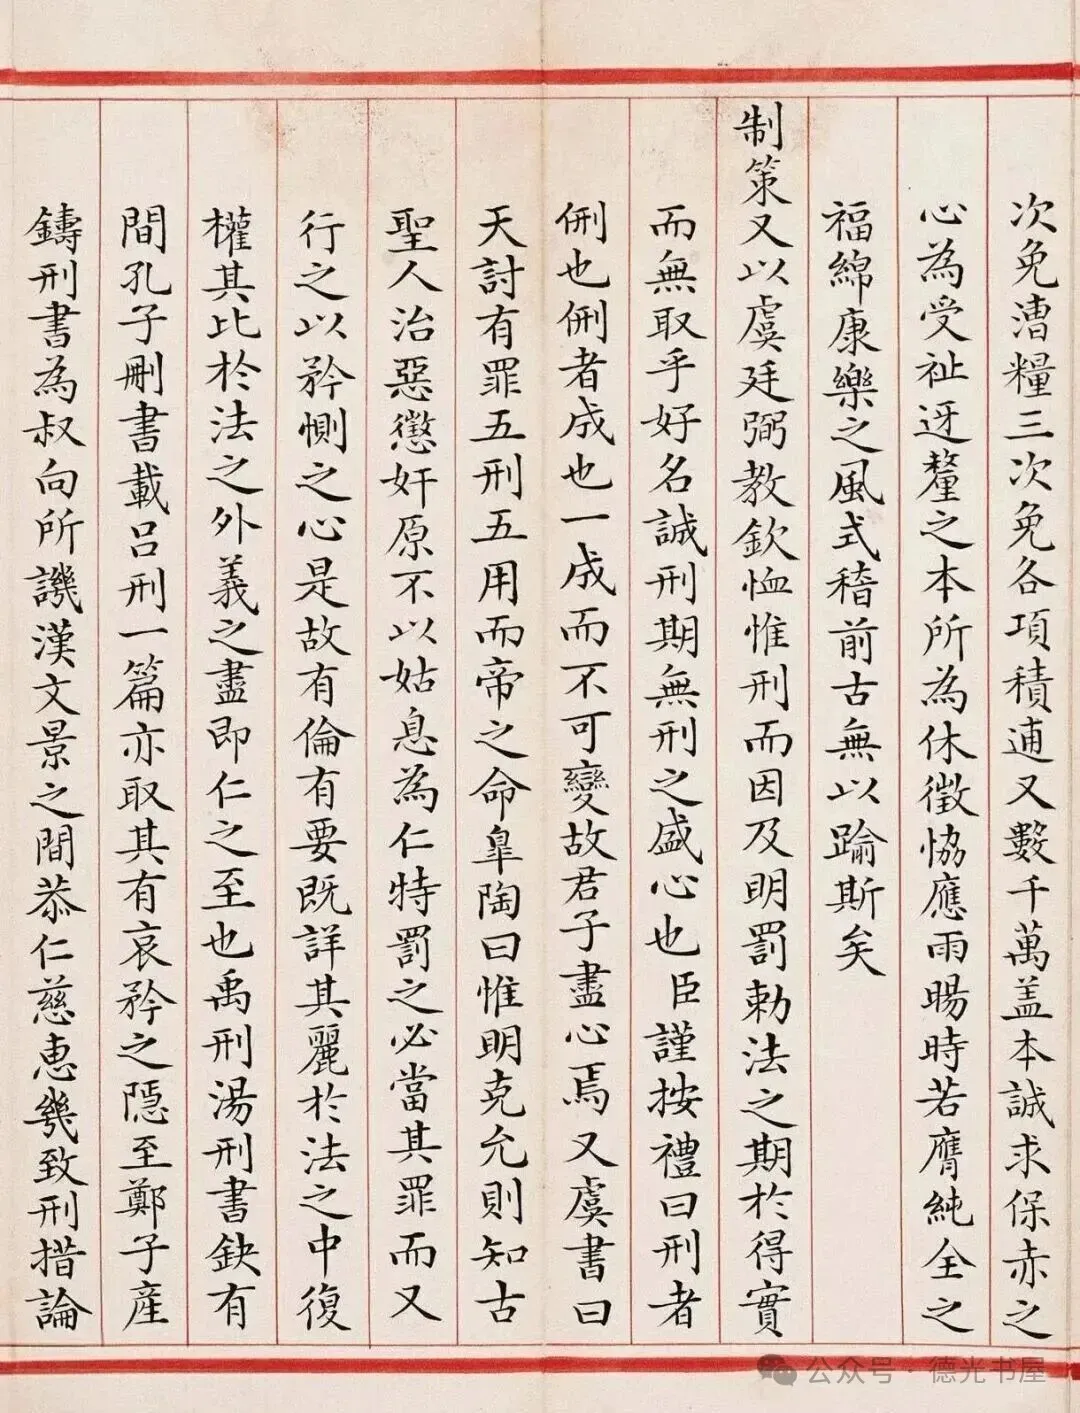 次免漕糧三次免各項積逋又數千萬盖本誠求保赤之
心為受祉迓釐之本所為休徵恊應雨暘時若膺純全之
福綿康樂之風式稽前古無以踰斯矣
制策又以虞廷弼教欽恤惟刑而因及明罰勅法之期於得實
而無取乎好名誠刑期無刑之盛心也臣謹按禮曰刑者
侀也侀者成也一成而不可變故君子盡心焉又虞書曰
天討有罪五刑五用而帝之命臯陶曰惟明克允則知古
聖人治惡懲奸原不以姑息為仁特罰之必當其罪而又
行之以矜惻之心是故有倫有要既詳其麗於法之中復
權其比於法之外義之盡即仁之至也禹刑湯刑書缺有
間孔子刪書載呂刑一篇亦取其有哀矜之隱至鄭子產
鑄刑書為叔向所譏漢文景之間恭仁慈惠幾致刑措論
公众号·德光书屋